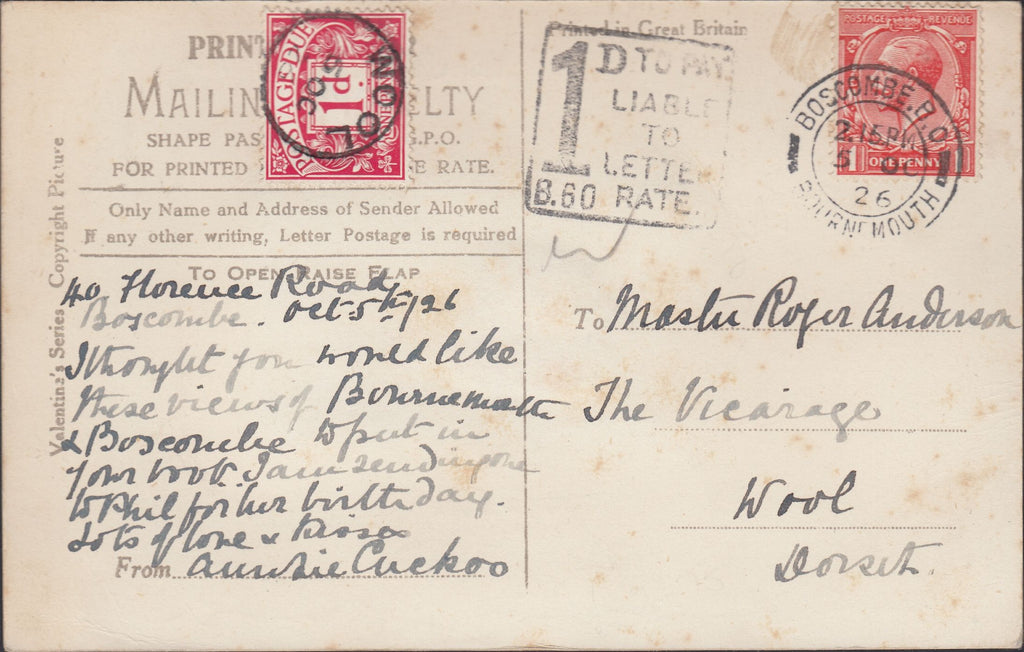 Printed in Great Britain
PRIN
MAILIN ELTY
SHAPE PAS G.P.O.
FOR PRINTED E RATE.
POSTAGE DUE
1D
WOOL
OC
1D TO PAY
LIABLE
TO
LETTE
B.60 RATE.
POSTAGE REVENUE
ONE PENNY
BOSCOMBE.B.O
2-15PM
5 OC
26
BOURNEMOUTH
Only Name and Address of Sender Allowed
If any other writing, Letter Postage is required
TO OPEN RAISE FLAP
Valentine's Series Copyright Picture
40 Florence Road
Boscombe. Oct. 5th/26
I thought you would like
these views of Bournemouth
& Boscombe to put in
your book. I am sending one
to Phil for her birthday.
Lots of love & kisses
From Auntie Cuckoo
To Master Roger Anderson
The Vicarage
Wool
Dorset.